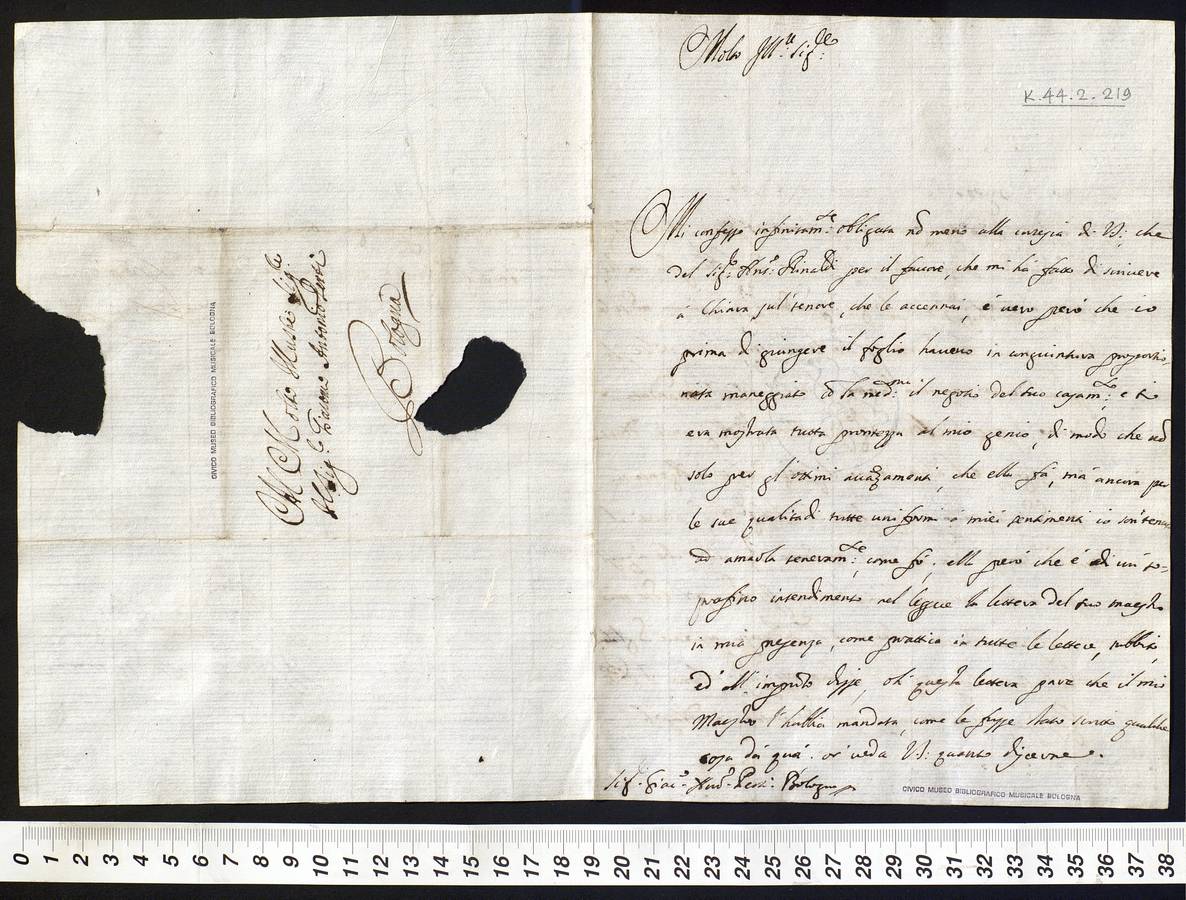 Al Molto Illustre Sig.re
Sig.r Giacomo Antonio Perti
Bologna
CIVICO MUSEO BIBLIOGRAFICO MUSICALE BOLOGNA
Molto Ill.re Sig.re
K.44.2.219
Mi confesso infinitam.te obligata nõ meno alla cortesia di V.S: che
del Sig.r Ant.o Rinaldi per il favore, che mi hà fatto di scrivere
à Chiara sul tenore, che le accennai, è vero però che io
prima di giungere il foglio havevo in congiuntura proportio-
nata maneggiato cõ la med.ma il negotio del suo casam.to, e si
era mostrata tutta prontezza al mio genio, di modo che nõ
solo per gl'ottimi avazamenti, che ella fà, mà ancora per
le sue qualitadi tutte uniformi a miei sentimenti io son tenuta
ad amarla teneram.te, come fò, ella però che è di un so-
praffino intendimento nel leggere la lettera del suo maestro
in mia presenza, come prattica in tutte le lettere, subbito,
ed all'improviso disse, oh' questa lettera pare che il mio
Maestro l'habbia mandata, come le fusse stato scritto qualche
cosa da quà. or' veda V.S: quanto discerne.
Sig.r Giac.o Ant.o Perti. Bologna
CIVICO MUSEO BIBLIOGRAFICO MUSICALE BOLOGNA
0 1 2 3 4 5 6 7 8 9 10 11 12 13 14 15 16 17 18 19 20 21 22 23 24 25 26 27 28 29 30 31 32 33 34 35 36 37 38